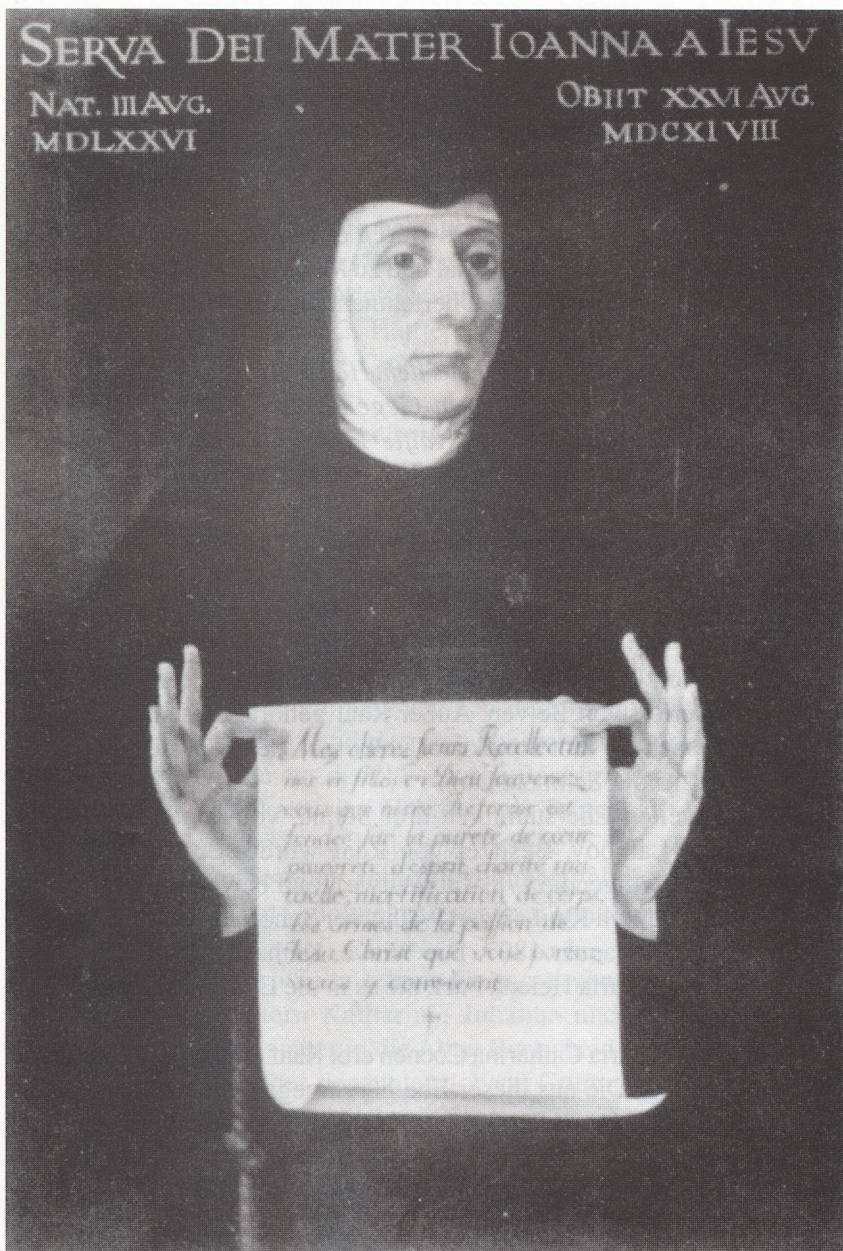 SERVA DEI MATER IOANNA A IESV
NAT. III AVG.
MDLXXVI
OBIIT XXVI AVG.
MDCXLVIII
Mes cheres sœurs Recollecti
nes et filles en Dieu souvenez
vous que nôtre Reforme est
fondee sur la pureté de cœur
pauvreté d'esprit, charité mu
tuelle, mortification de corps.
Les armes de la passion de
Jesu Christ que vous portez
vous y convient